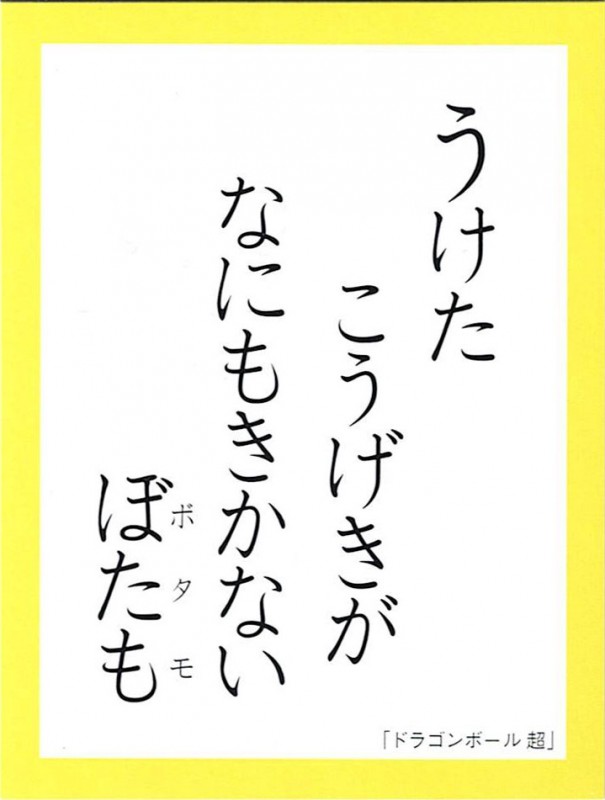 うけた
こうげきが
なにもきかない
ぼたも
ボタモ
「ドラゴンボール 超」